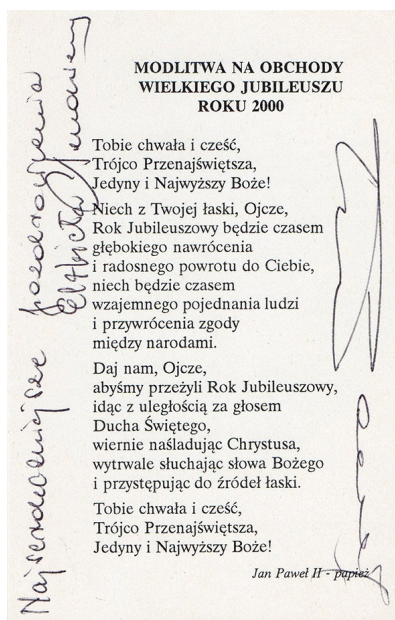 MODLITWA NA OBCHODY
WIELKIEGO JUBILEUSZU
ROKU 2000
Tobie chwała i cześć,
Trójco Przenajświętsza,
Jedyny i Najwyższy Boże!
Niech z Twojej łaski, Ojcze,
Rok Jubileuszowy będzie czasem
głębokiego nawrócenia
i radosnego powrotu do Ciebie,
niech będzie czasem
wzajemnego pojednania ludzi
i przywrócenia zgody
między narodami.
Daj nam, Ojcze,
abyśmy przeżyli Rok Jubileuszowy,
idąc z uległością za głosem
Ducha Świętego,
wiernie naśladując Chrystusa,
wytrwale słuchając słowa Bożego
i przystępując do źródeł łaski.
Tobie chwała i cześć,
Trójco Przenajświętsza,
Jedyny i Najwyższy Boże!
Jan Paweł II - papież
Najserdeczniejsze pozdrowienia
Elżbieta